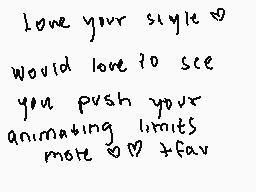 Love your style ♡
would love to see
you push your
animating limits
more ♡♡ +fav